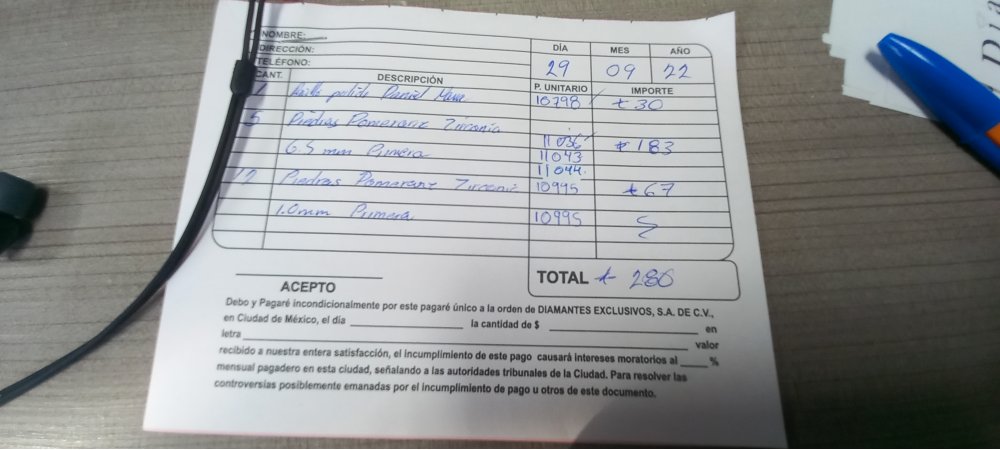 NOMBRE:
DIRECCIÓN:
TELÉFONO:
DÍA MES AÑO
29 09 22
CANT. DESCRIPCIÓN P. UNITARIO IMPORTE
1 polido Daniel 10798 30
5 Piedras Zirconia
11036 183
6.5 mm Primera 11043
11044
12 Piedras 10995 67
1.0mm Primera 10995
TOTAL 280
ACEPTO
Debo y Pagaré incondicionalmente por este pagaré único a la orden de DIAMANTES EXCLUSIVOS, S.A. DE C.V.,
en Ciudad de México, el día la cantidad de $ en
letra valor
recibido a nuestra entera satisfacción, el incumplimiento de este pago causará intereses moratorios al %
mensual pagadero en esta ciudad, señalando a las autoridades tribunales de la Ciudad. Para resolver las
controversias posiblemente emanadas por el incumplimiento de pago u otros de este documento.